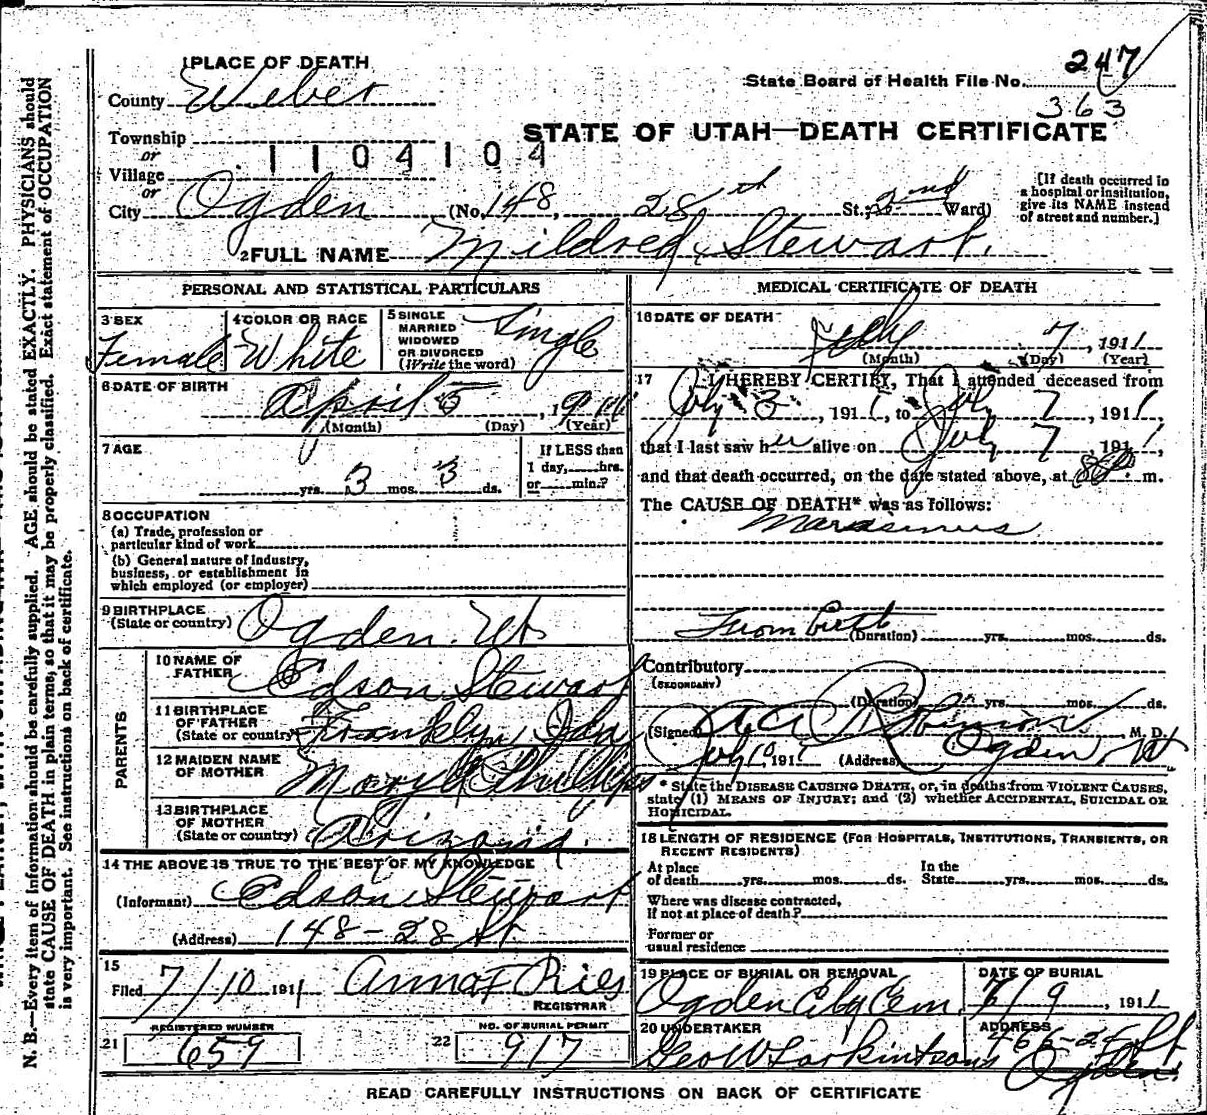 1PLACE OF DEATH
County Weber
State Board of Health File No. 247
363
STATE OF UTAH—DEATH CERTIFICATE
Township
or
1104104
Village
or
City Ogden (No. 148, 28th St.; 2nd Ward)
[If death occurred in a hospital or institution, give its NAME instead of street and number.]
2FULL NAME Mildred Stewart.
PERSONAL AND STATISTICAL PARTICULARS
3 SEX
Female
4 COLOR OR RACE
White
5 SINGLE
MARRIED
WIDOWED
OR DIVORCED
(Write the word)
Single
6 DATE OF BIRTH
April 5, 1911
(Month) (Day) (Year)
7 AGE
yrs. 3 mos. 3 ds.
If LESS than
1 day, hrs.
or min.?
8 OCCUPATION
(a) Trade, profession or
particular kind of work
(b) General nature of industry,
business, or establishment in
which employed (or employer)
9 BIRTHPLACE
(State or country) Ogden. Ut
PARENTS
10 NAME OF
FATHER Edson Stewart
11 BIRTHPLACE
OF FATHER
(State or country) Franklyn Ida
12 MAIDEN NAME
OF MOTHER Mary Phillips
13 BIRTHPLACE
OF MOTHER
(State or country) Arizona.
14 THE ABOVE IS TRUE TO THE BEST OF MY KNOWLEDGE
(Informant) Edson Stewart
(Address) 148-28 St.
15
Filed 7/10 1911 Anna F Ries
REGISTRAR
REGISTERED NUMBER
21 659
NO. OF BURIAL PERMIT
22 917
MEDICAL CERTIFICATE OF DEATH
16 DATE OF DEATH
July 7, 1911
(Month) (Day) (Year)
17 I HEREBY CERTIFY, That I attended deceased from
July 3, 1911, to July 7, 1911,
that I last saw her alive on July 7, 1911,
and that death occurred, on the date stated above, at m.
The CAUSE OF DEATH* was as follows:
Marasmus
From birth
(Duration) yrs. mos. ds.
Contributory
(SECONDARY)
(Duration) yrs. mos. ds.
(Signed) Robinson, M. D.
July 10, 1911 (Address) Ogden Ut
* State the DISEASE CAUSING DEATH, or, in deaths from VIOLENT CAUSES,
state (1) MEANS OF INJURY; and (2) whether ACCIDENTAL, SUICIDAL OR
HOMICIDAL.
18 LENGTH OF RESIDENCE (FOR HOSPITALS, INSTITUTIONS, TRANSIENTS, OR
RECENT RESIDENTS)
At place In the
of death yrs. mos. ds. State yrs. mos. ds.
Where was disease contracted,
If not at place of death?
Former or
usual residence
19 PLACE OF BURIAL OR REMOVAL
Ogden City Cem.
DATE OF BURIAL
7/9, 1911
20 UNDERTAKER
Geo W Larkin & Sons
ADDRESS
Ogden.
READ CAREFULLY INSTRUCTIONS ON BACK OF CERTIFICATE
N. B.—Every item of information should be carefully supplied. AGE should be stated EXACTLY. PHYSICIANS should
state CAUSE OF DEATH in plain terms, so that it may be properly classified. Exact statement of OCCUPATION
is very important. See instructions on back of certificate.